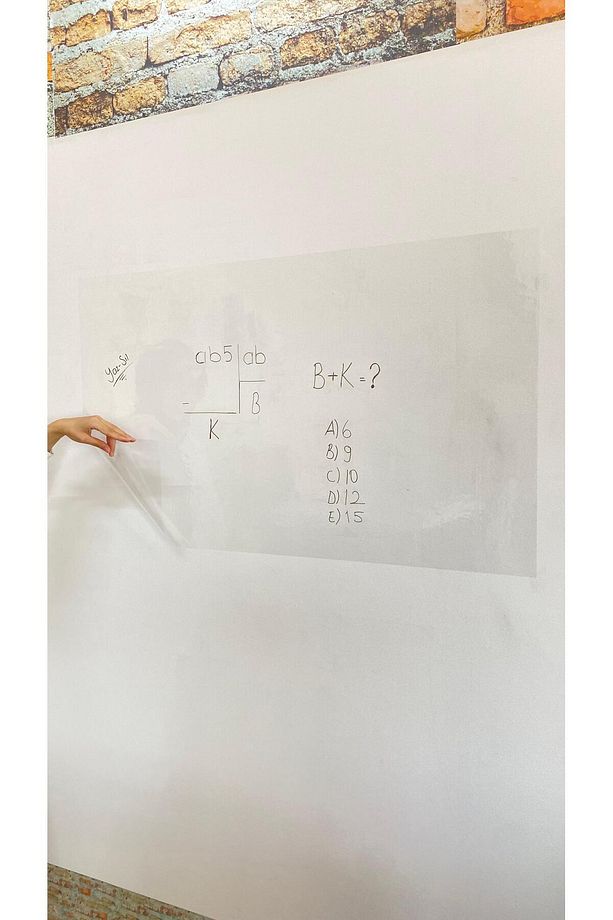 Yaz-Sil
ab5 ab
- B
K
B+K=?
A) 6
B) 9
C) 10
D) 12
E) 15